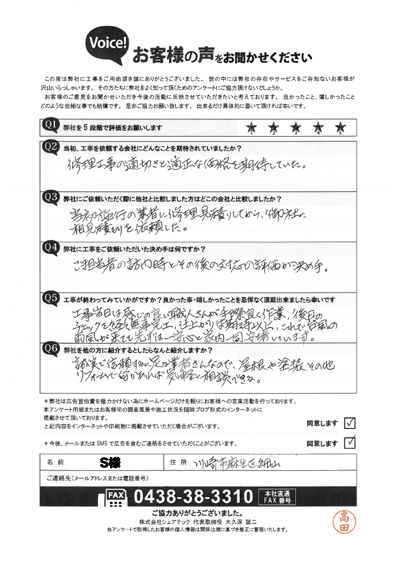 Voice!
お客様の声をお聞かせください
この度は弊社に工事をご用命頂き誠にありがとうございました。世の中には弊社の存在やサービスをご存知ないお客様が
沢山いらっしゃいます。その方たちに弊社をよく知って頂くためのアンケートにご協力頂けないでしょうか。
お客様のご意見をお聞かせいただき今後の活動に反映させていただきたいと考えております。良かったこと、嬉しかったこと
どのような些細な事でも結構です。是非ご協力お願い致します。出来るだけ具体的に書いて頂ければ幸いです。
Q1 弊社を5段階で評価をお願いします ★ ★ ★ ★ ★
Q2 当初、工事を依頼する会社にどんなことを期待されていましたか?
修理工事の適切さと適正な価格を期待していた。
Q3 弊社にご依頼いただく際に他社と比較しました方はどこの会社と比較しましたか?
当初、近所の業者に修理見積りしてから、御社に
相見積りを依頼した。
Q4 弊社に工事をご依頼いただいた決め手は何ですか?
ご担当者の訪問時とその後の対応の評価が決め手。
Q5 工事が終わってみていかがですか?良かった事・嬉しかったことを忌憚なく頂戴出来ましたら幸いです
工事当日は感じの良い職人さんが手際良く作業、後日の
チェックを経て無事完工、仕上がりは期待以上、これで台風の
Q6 弊社を他の方に紹介するとしたらなんと紹介しますか?
誠実で信頼に足る業者さんなので、屋根や塗装その他
リフォームで何かあれば気軽に相談できる。
※弊社は広告宣伝費を極力かけない為にホームページだけを頼りにお客様への営業活動を行っております。
本アンケート用紙またはお客様宅の調査風景や施工状況を随時ブログ形式のインターネットに
掲載させて頂いております。
上記内容をインターネットや印刷物に掲載させていただく場合がございます。 同意します
※今後、メールまたはSMSで広告を含むご連絡をさせていただくことがございます。 同意します
名前 S様 住所 川崎市麻生区細山
ご連絡先(メールアドレスまたは電話番号)
FAX 0438-38-3310 本社直通 FAX番号
ご協力ありがとうございました。
株式会社シェアテック 代表取締役 大久保 誠二
当アンケートで取得したお客様の個人情報は関係法規に基づき厳正に管理いたします。
高田